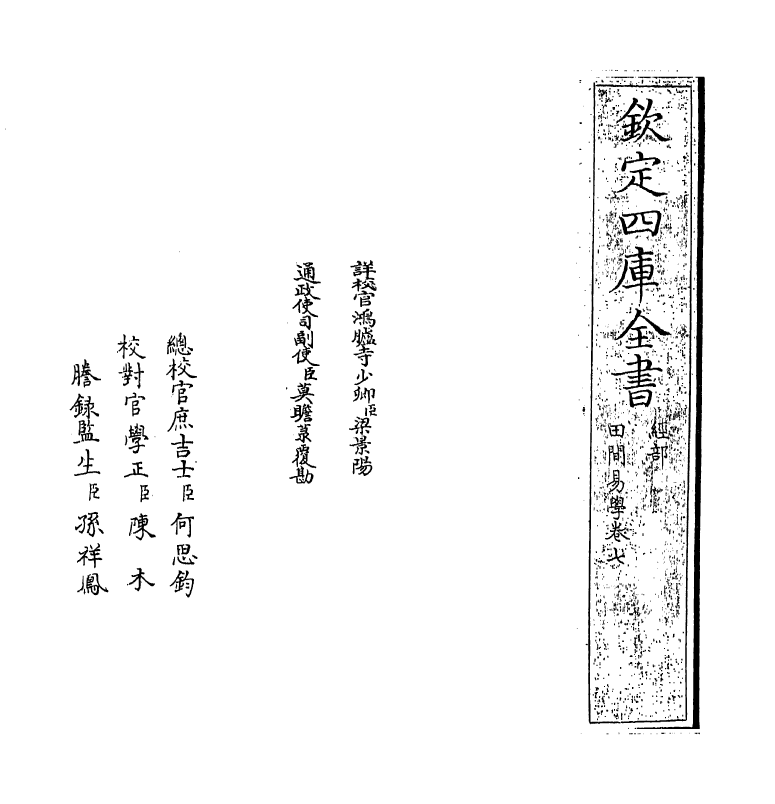 欽定四庫全書
經部
田間易學卷七
詳校官鴻臚寺少卿臣梁景陽
通政使司副使臣莫瞻菉覆勘
總校官庶吉士臣何思鈞
校對官學正臣陳木
謄録監生臣孫祥鳳